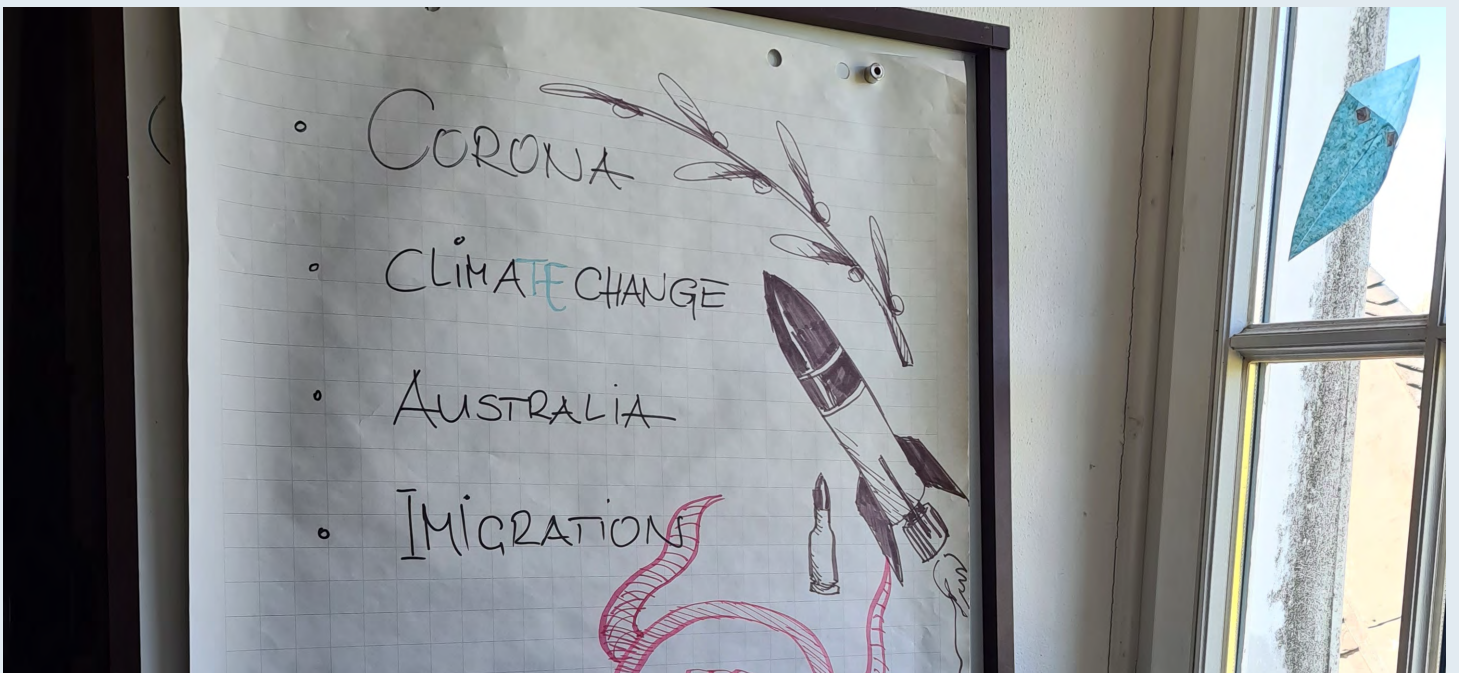 CORONA
CLIMATE CHANGE
AUSTRALIA
IMIGRATION